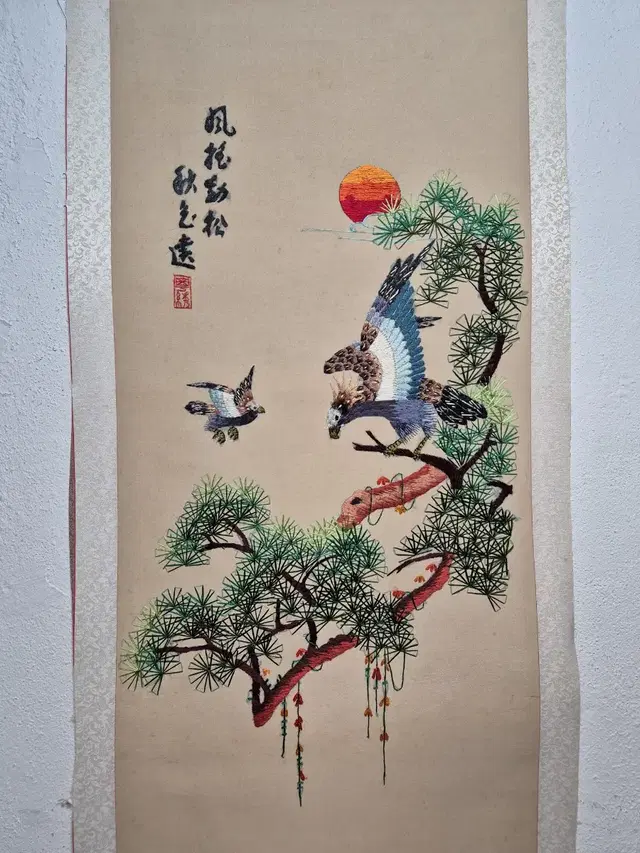 風搖勁松
秋色遠